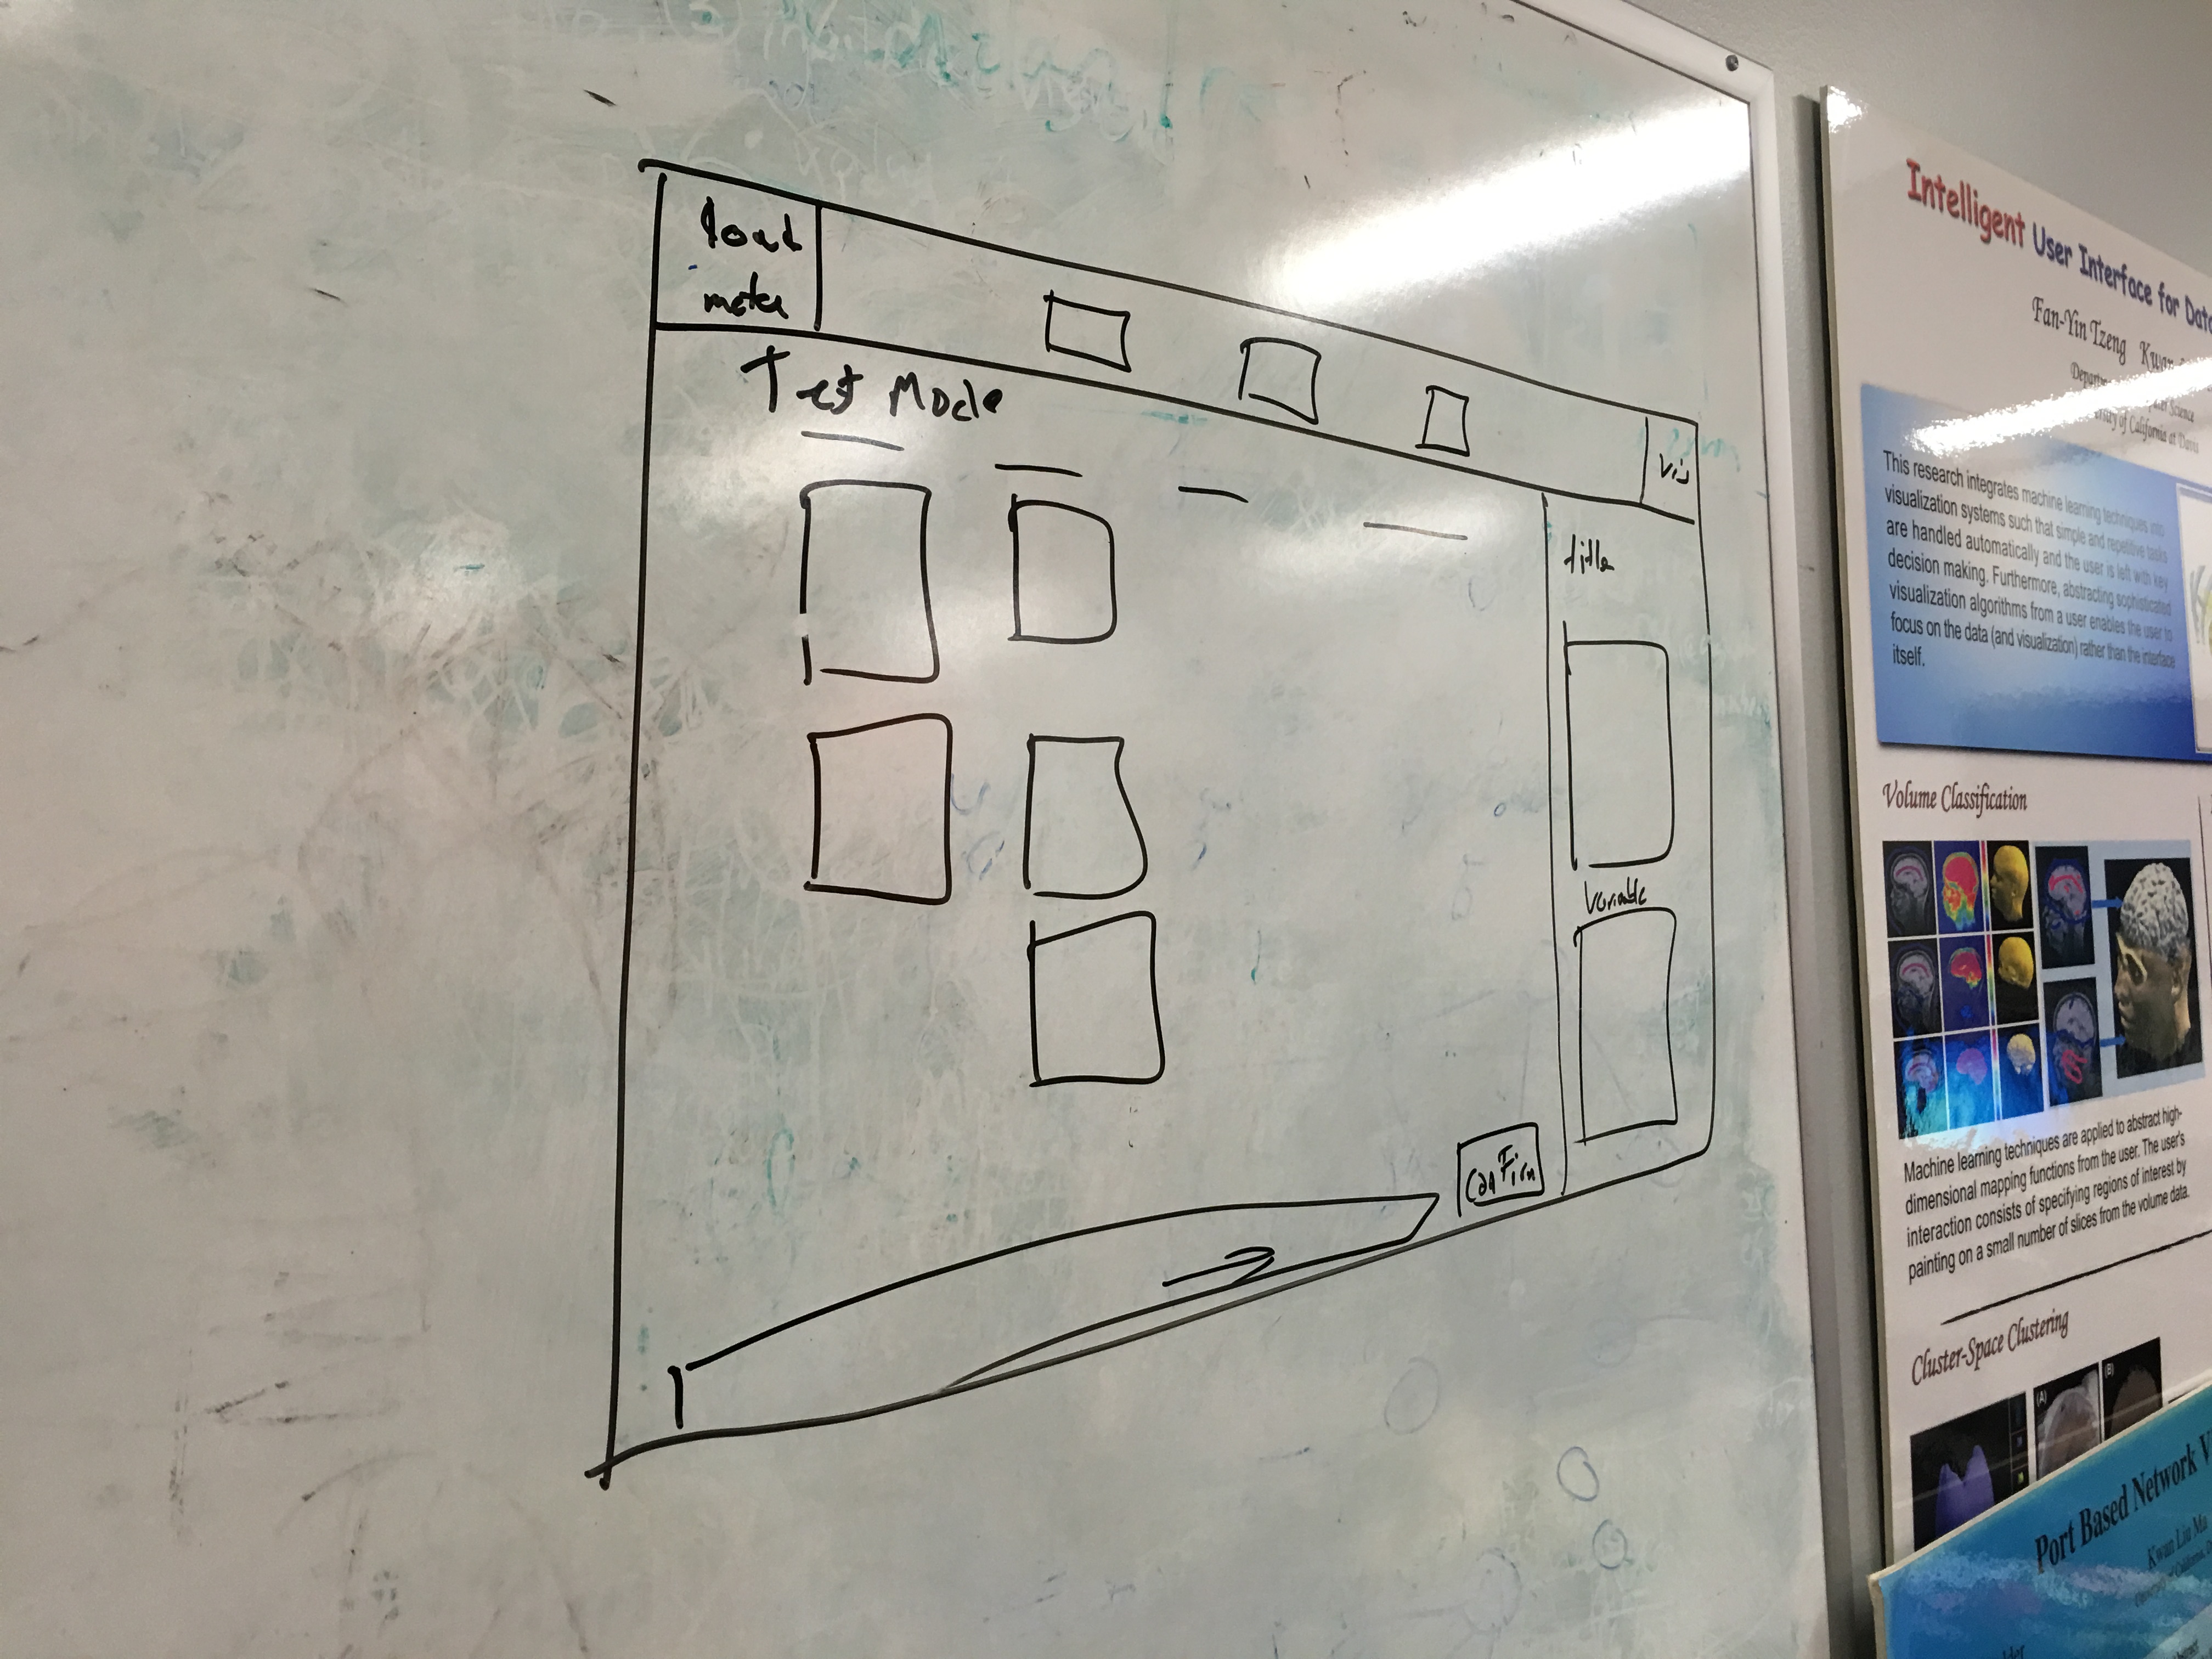 load
meta
Test Mode
Vis
title
Variable
Confirm
Intelligent User Interface for Data
Fan-Yin Tzeng Kwan
Science
University of California at Davis
This research integrates machine learning techniques into
visualization systems such that simple and repetitive tasks
are handled automatically and the user is left with key
decision making. Furthermore, abstracting sophisticated
visualization algorithms from a user enables the user to
focus on the data (and visualization) rather than the interface
itself.
Volume Classification
Machine learning techniques are applied to abstract high-
dimensional mapping functions from the user. The user's
interaction consists of specifying regions of interest by
painting on a small number of slices from the volume data.
Cluster-Space Clustering
(A)
(B)
Port Based Network V
Kwan Liu Ma